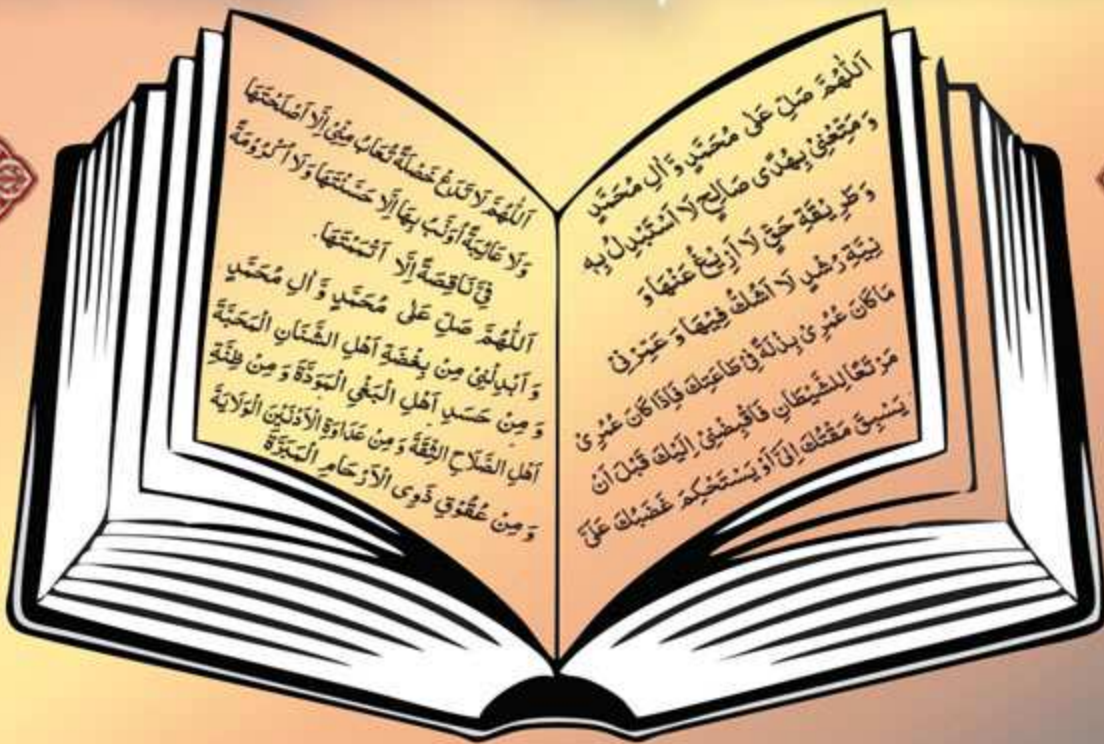 اَللّٰهُمَّ صَلِّ عَلٰی مُحَمَّدٍ وَّ اٰلِ مُحَمَّدٍ
وَ مَتِّعْنِیْ بِهُدًی صَالِحٍ لَا اَسْتَبْدِلُ بِهٖ
وَ طَرِیْقَةِ حَقٍّ لَا اَزِیْغُ عَنْهَا وَ
نِیَّةِ رُشْدٍ لَا اَشُكُّ فِیْهَا وَ عَمِّرْنِیْ
مَا كَانَ عُمْرِیْ بِذْلَةً فِیْ طَاعَتِكَ فَاِذَا كَانَ عُمْرِیْ
مَرْتَعًا لِلشَّیْطَانِ فَاقْبِضْنِیْ اِلَیْكَ قَبْلَ اَنْ
یَسْبِقَ مَقْتُكَ اِلَیَّ اَوْ یَسْتَحْكِمَ غَضَبُكَ عَلَیَّ
اَللّٰهُمَّ لَا تَدَعْ خَصْلَةً تُعَابُ مِنِّیْ اِلَّا اَصْلَحْتَهَا
وَلَا عَائِبَةً اُوَنَّبُ بِهَا اِلَّا حَسَّنْتَهَا وَلَا اُكْرُوْمَةً
فِیَّ نَاقِصَةً اِلَّا اَتْمَمْتَهَا.
اَللّٰهُمَّ صَلِّ عَلٰی مُحَمَّدٍ وَّ اٰلِ مُحَمَّدٍ
وَ اَبْدِلْنِیْ مِنْ بِغْضَةِ اَهْلِ الشَّنَانِ الْمَحَبَّةَ
وَ مِنْ حَسَدِ اَهْلِ الْبَغْیِ الْمَوَدَّةَ وَ مِنْ ظِنَّةِ
اَهْلِ الصَّلَاحِ الثِّقَةَ وَ مِنْ عَدَاوَةِ الْاَدْنَیْنَ الْوَلَایَةَ
وَ مِنْ عُقُوْقِ ذَوِی الْاَرْحَامِ الْمَبَرَّةَ